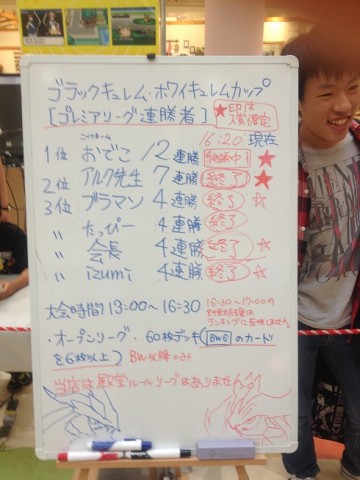 ブラックキュレム・ホワイキュレムカップ
[プレミアリーグ連勝者]
★印は入賞確定
16:20現在
1位 おでこ 12連勝 継続中! ★
2位 アルク先生 7連勝 終了 ★
3位 ブラマン 4連勝 終了 ☆
〃 たっぴー 4連勝 終了
〃 会長 4連勝 終了 ☆
〃 izumi 4連勝 終了 ☆
大会時間 13:00〜16:30
16:30〜17:00の
ランキングに反映しません
・オープンリーグ・60枚デッキ(BW6のカード
を6枚以上) BW以降のみ
当店は殿堂ルールリーグはありません。